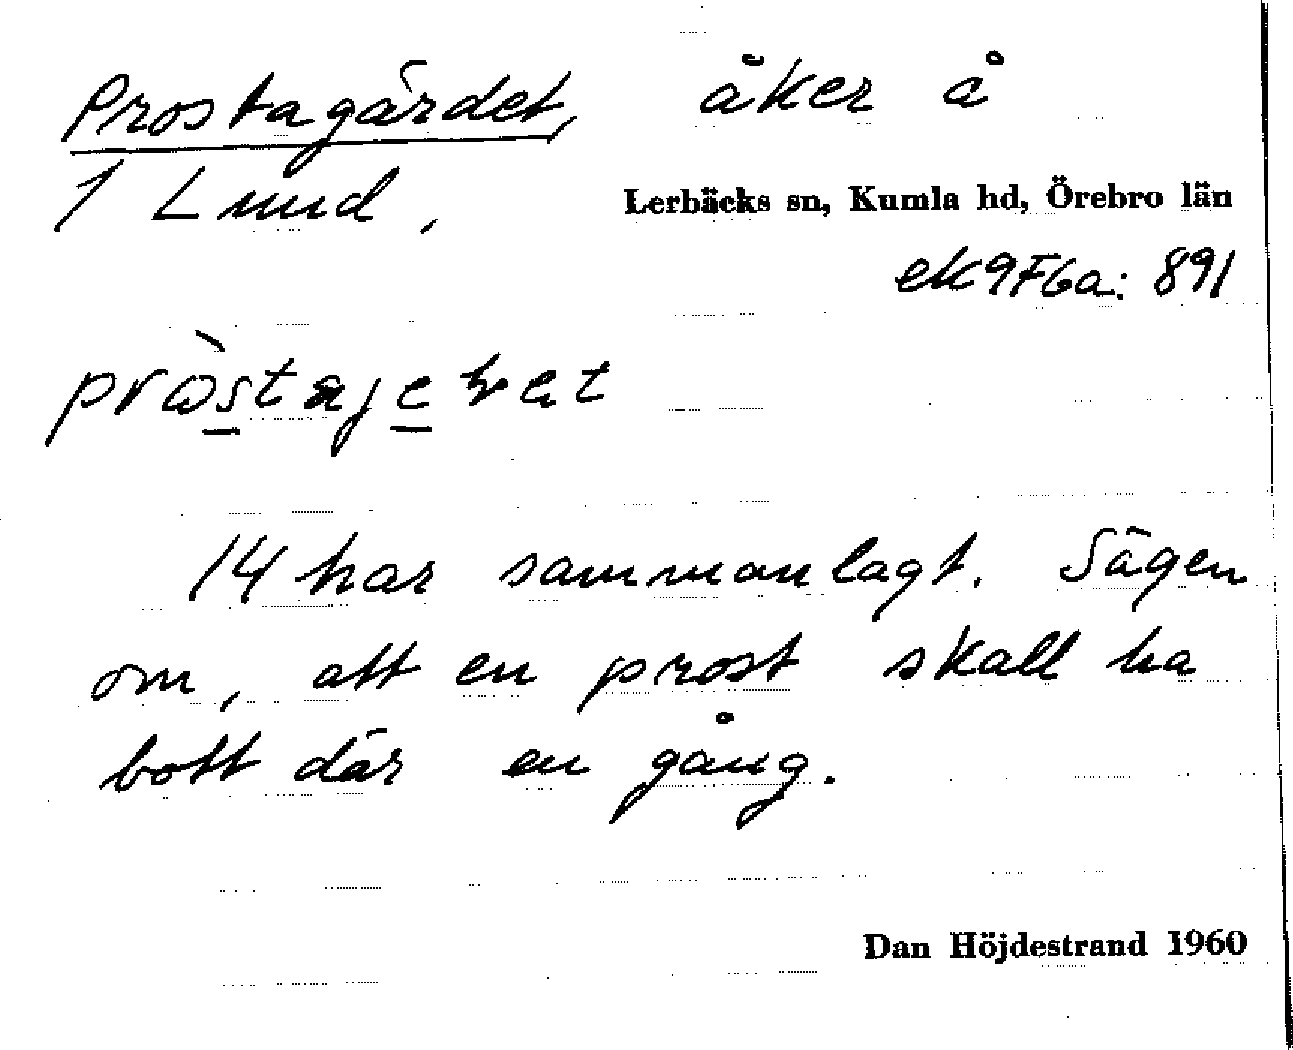 Prostagärdet, åker å
1 Lund,
Lerbäcks sn, Kumla hd, Örebro län
ek 9F6a: 891
14 har sammanlagt. Sägen
om, att en prost skall ha
bott där en gång.
Dan Höjdestrand 1960